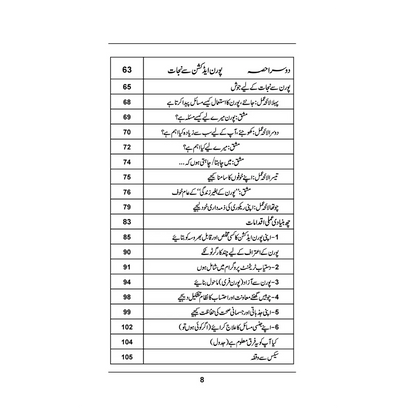 دوسرا حصہ پورن ایڈکشن سے نجات 63
پورن سے نجات کے لیے جوش 65
پہلا لائحہ عمل: جانئے، پورن کا استعمال کیسے مسائل پیدا کرتا ہے 68
مشق: پورن میرے لیے کیسے مسئلہ ہے؟ 69
دوسرا لائحہ عمل: کھوجئے، آپ کے لیے سب سے زیادہ کیا اہم ہے؟ 70
مشق: میرے لیے کیا اہم ہے؟ 72
مشق: میں چاہتا/چاہتی ہوں کہ... 74
تیسرا لائحہ عمل: اپنے خوفوں کا سامنا کیجیے 75
مشق: "پورن کے بغیر زندگی" کے عام خوف 76
چوتھا لائحہ عمل: اپنی ریکوری کی ذمہ داری خود لیجیے 79
چھ بنیادی عملی اقدامات 83
1- اپنی پورن ایڈکشن کا کسی مخلص اور قابل بھروسہ کو بتایئے 85
پورن کے اعتراف کے لیے چند کارگر ٹوٹکے 90
2- دستیاب ٹریٹمنٹ پروگرام میں شامل ہوں 91
3- پورن سے آزاد (پورن فری) ماحول بنایئے 94
4- چوبیس گھنٹے معاونت اور احتساب کا نظام تشکیل دیجیے 98
5- اپنی جذباتی اور جسمانی صحت کی حفاظت کیجیے 99
6- اپنے جنسی مسائل کا علاج کرایئے (اگر کوئی ہوں تو) 102
کیا آپ کو یہ فرق معلوم ہے؟ (جدول) 104
سیکس سے وقفہ 105
8